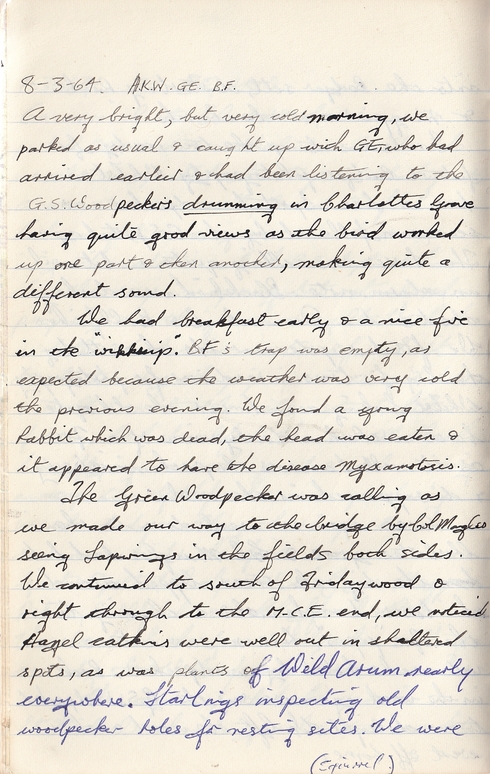 8-3-64. A.K.W. GE. B.F.
A very bright, but very cold morning, we
parked as usual & caught up with GE, who had
arrived earlier & had been listening to the
G.S. Woodpeckers drumming in Charlottes Grove
having quite good views as the bird worked
up one part & then another, making quite a
different sound.
We had breakfast early & a nice fire
in the "wikkiup". B.F's trap was empty, as
expected because the weather was very cold
the previous evening. We found a young
Rabbit which was dead, the head was eaten &
it appeared to have the disease Myxamotosis.
The Green Woodpecker was calling as
we made our way to the bridge by Col
seeing Lapwings in the fields both sides.
We continued to south of Fridaywood &
right through to the M.C.E. end, we noticed
Hazel catkins were well out in sheltered
spots, as was plants of Wild Arum nearly
everywhere. Starlings inspecting old
woodpecker holes for nesting sites. We were
(Squirrel)